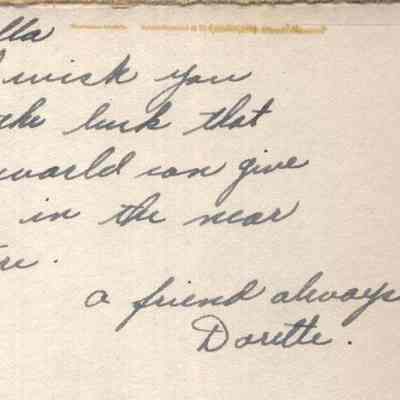 lla
I wish you
the luck that
world can give
in the near
re.
a friend always
Dorette.